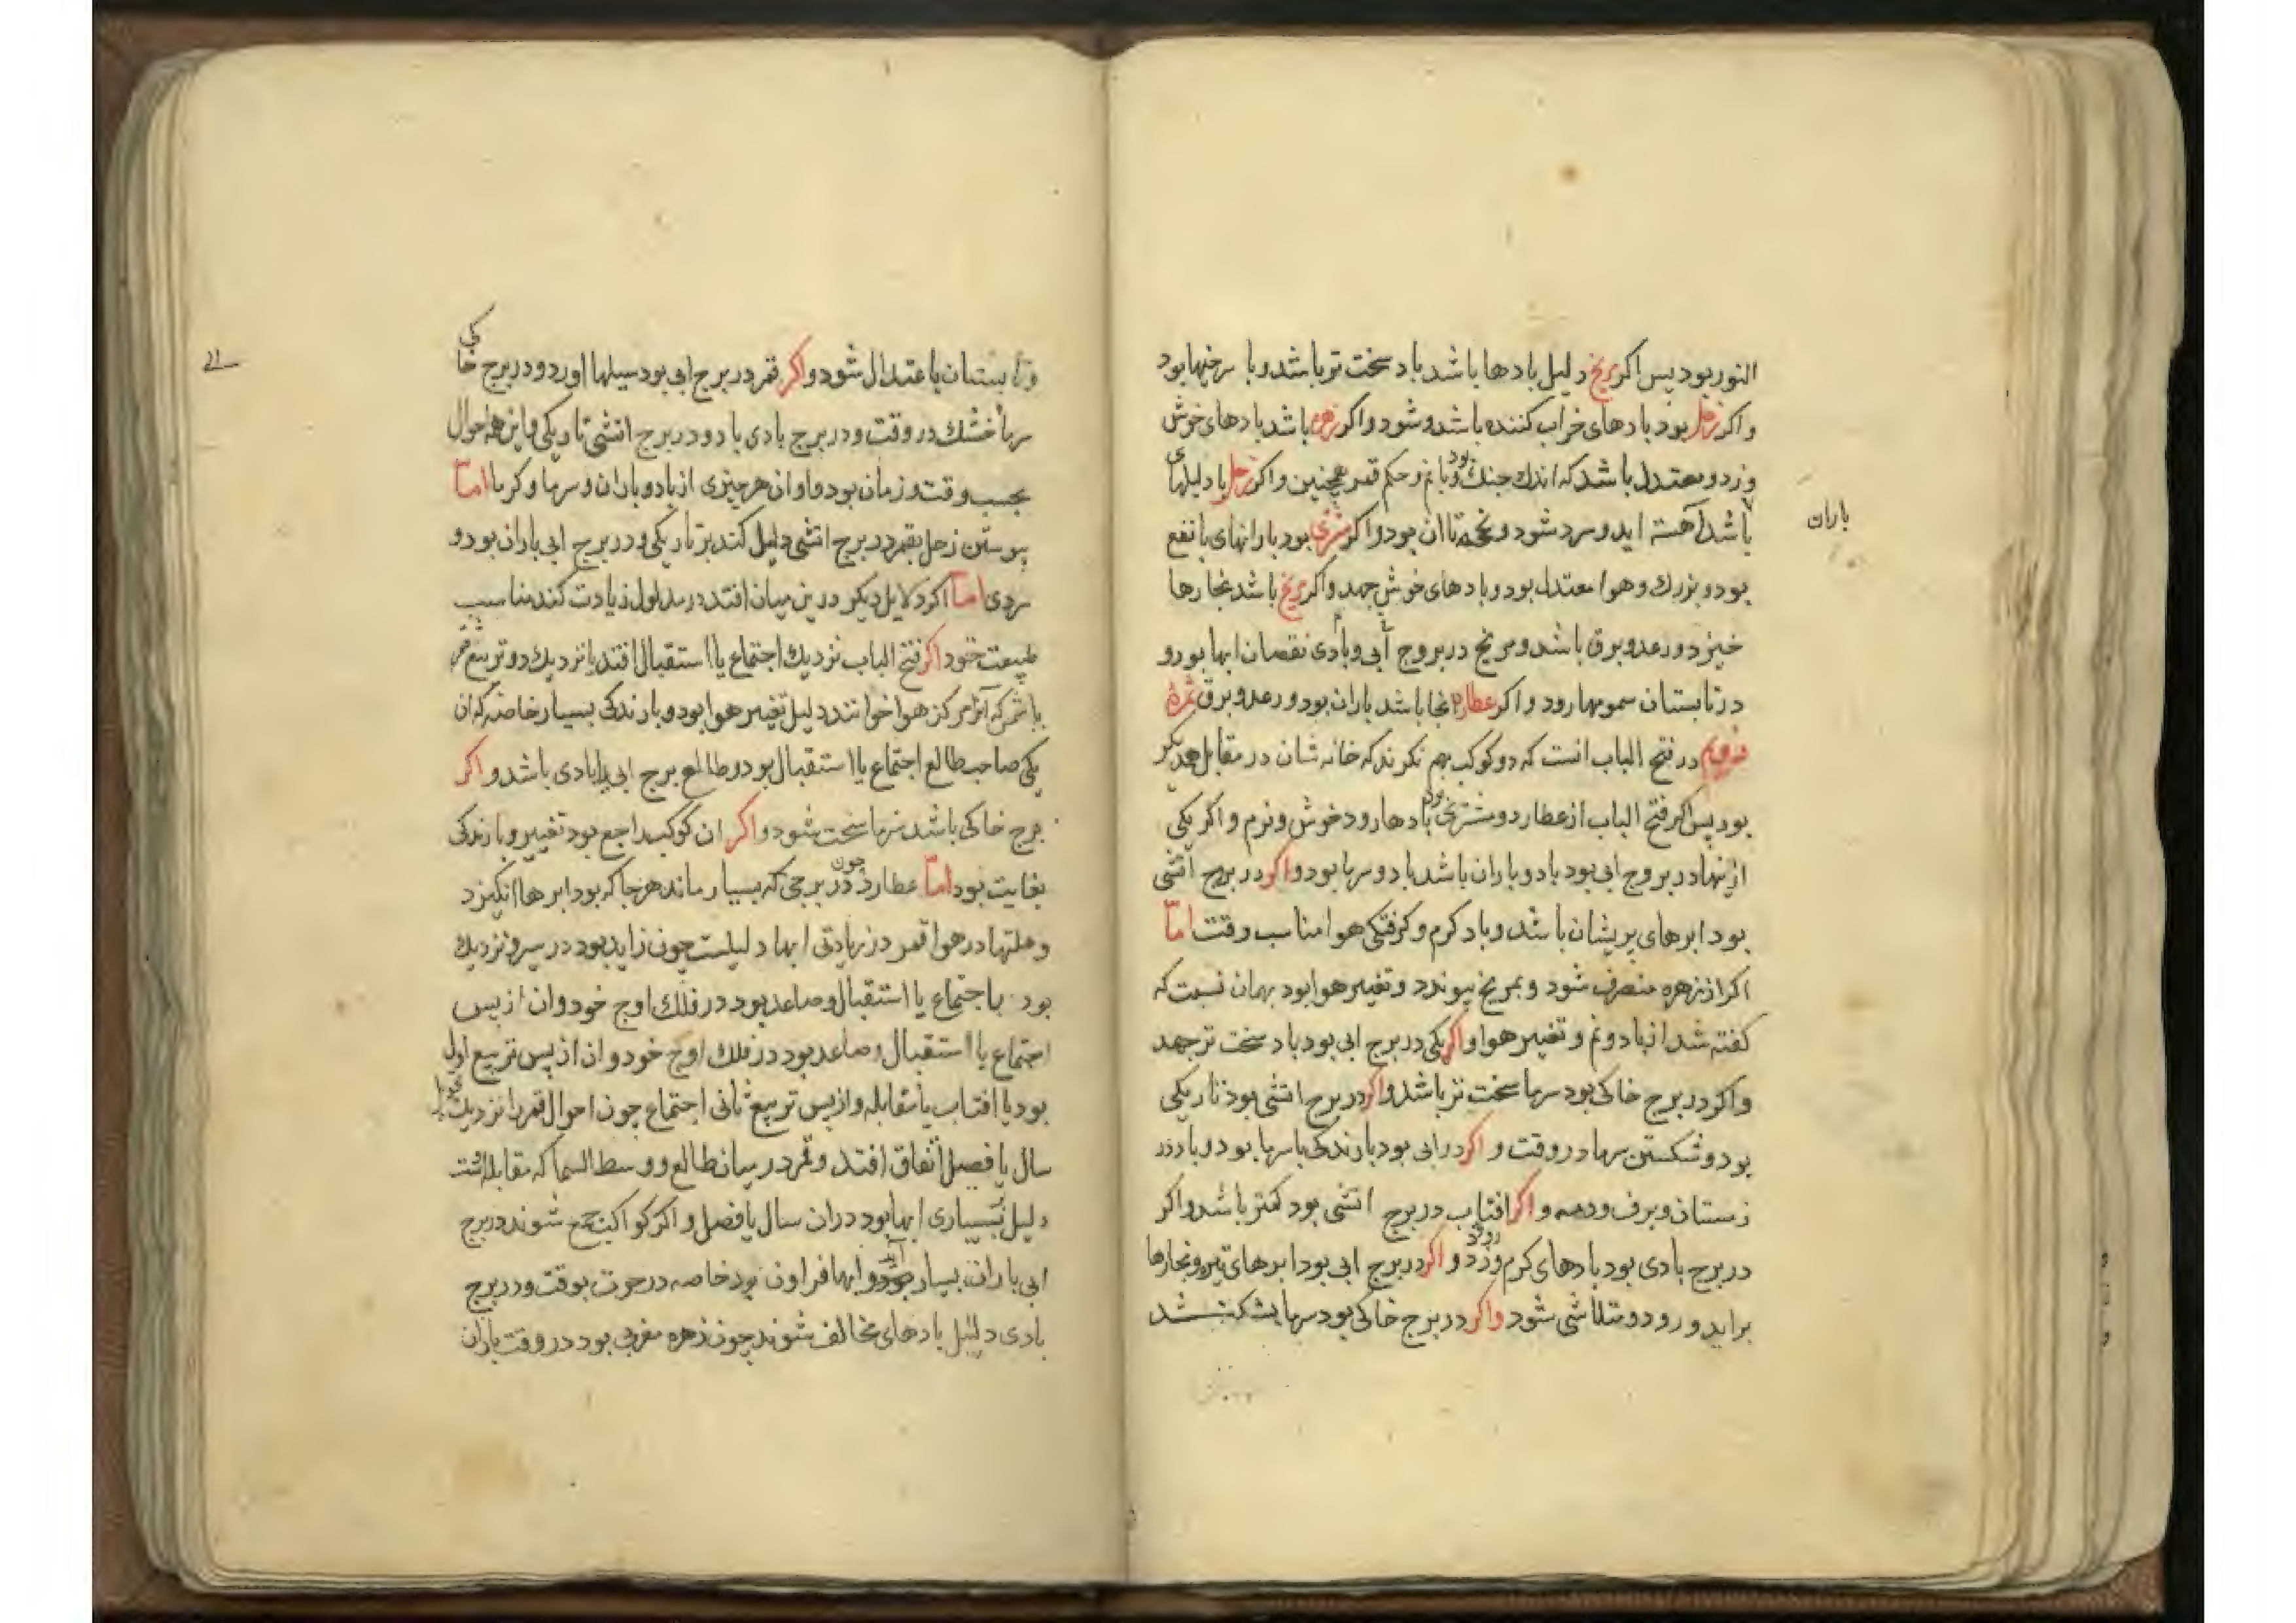 النور بود پس اکر مریخ دلیل بادها باشد باد سخت تر باشد و با سرخیها بود
و اکر زحل بود بادهای خراب کننده باشد و شود و اکر زهره باشد بادهای خوش
وزد و معتدل باشد که اندك خنك بود و با نم و حکم قمر همچنین و اکر زحل با دلیلهای
باران
باشد آهسته اید و سرد شود و بود و اکر مشتری بود بارانهای با نفع
بود و بزرك و هوا معتدل بود و بادهای خوش جهد و اکر مریخ باشد بخارها
خیزد و رعد و برق باشد و مریخ در بروج آبی و بادی نقصان ابها بود و
در تابستان سمومها رود و اکر عطارد انجا باشد باران بود و رعد و برق ثمرهٔ
در فتح الباب انست که دو کوکب بهم نکرند که خانه شان در مقابل همدیکر
بود پس اکر فتح الباب از عطارد و مشتری بود بادها رود خوش و نرم و اکر یکی
ازینها در بروج ابی بود باد و باران باشد باد و سرما بود و اکر در برج اتشی
بود ابرهای پریشان باشد و باد کرم و کرفتکی هوا مناسب وقت امّا
اکر از زهره منصرف شود و بمریخ پیوندد و تغییر هوا بود بهمان نسبت که
کفته شد از باد و نم و تغییر هوا و اکر یکی در برج ابی بود باد سخت تر جهد
و اکر در برج خاکی بود سرما سخت تر باشد و اکر در برج اتشی بود تاریکی
بود و شکستن سرما در وقت و اکر در ابی بود بارندکی با سرما بود و باد در
زمستان و برف و دمه و اکر افتاب در برج اتشی بود کمتر باشد و اکر
در برج بادی بود بادهای کرم وزد و اکر در برج ابی بود ابرهای تیره و بخارها
براید و رود و متلاشی شود و اکر در برج خاکی بود سرما بشکند
۲۱
و تابستان باعتدال شود و اکر قمر در برج ابی بود سیلها اورد و در برج خاکی
سرما خشك در وقت و در برج بادی باد و در برج اتشی تاریکی و این همه احوال
بحسب وقت و زمان بود و اوان هر چیزی از باد و باران و سرما و کرما امّا
پیوستن زحل بقمر در برج اتشی دلیل کند بر تاریکی و در برج ابی باران بود و
سردی امّا اکر دلایل دیکر درین میان افتد در مدلول زیادت کند مناسب
طبیعت خود اکر فتح الباب نزدیك اجتماع یا استقبال افتد یا نزدیك دو تربیع قمر
باشد که آنرا مرکز هوا خوانند دلیل تغییر هوا بود و بارندکی بسیار خاصه که ان
یکی صاحب طالع اجتماع یا استقبال بود و طالع برج ابی یا بادی باشد و اکر
برج خاکی باشد سرما سخت شود و اکر ان کوکب راجع بود تغییر و بارندکی
بغایت بود امّا عطارد چون در برجی که بسیار ماند هر جا که بود ابرها انکیزد
و علتها در هوا قمر در زیادتی ابها دلیلست چون زاید بود در سیر و نزدیك
بود باجتماع یا استقبال و صاعد بود در فلك اوج خود و ان از پس
اجتماع یا استقبال و صاعد بود در فلك اوج خود و ان از پس تربیع اول
بود یا افتاب یا مقابله و از پس تربیع ثانی اجتماع چون احوال قمر را نزدیك
سال یا فصل اتفاق افتد و قمر در میان طالع و وسط السما که مقابله است
دلیل بسیاری ابها بود دران سال یا فصل و اکر کواکب جمع شوند در برج
ابی باران بسیار آید و ابها فراون بود خاصه در حوت بوقت و در برج
بادی دلیل بادهای مخالف شوند چون زهره مغربی بود در وقت باران